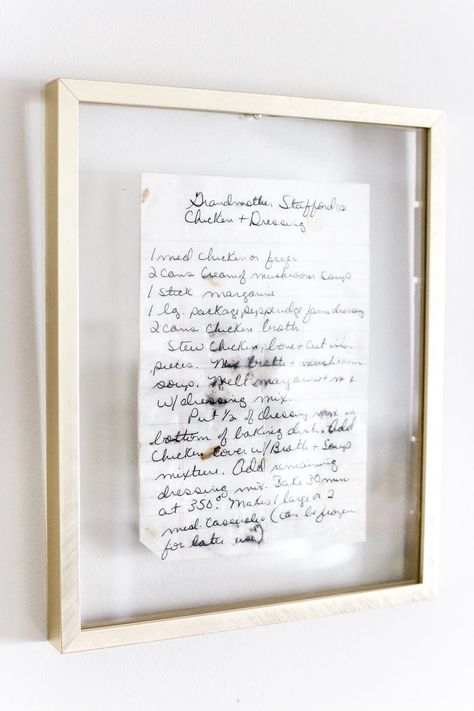 Grandmother Stafford's
Chicken + Dressing
1 med chicken or fryer
2 cans cream of mushroom soup
1 stick margarine
1 lg. package pepperidge farm dressing
2 cans chicken broth
Stew chicken, bone + cut into
pieces. Mix broth + mushroom
soup. Melt margarine + mix
w/ dressing mix.
Put 1/2 of dressing mix in
bottom of baking dish. Add
chicken cover w/ Broth + Soup
mixture. Add remaining
dressing mix. Bake 30 min
at 350°. Makes 1 large or 2
med. casseroles (can be frozen
for later use)